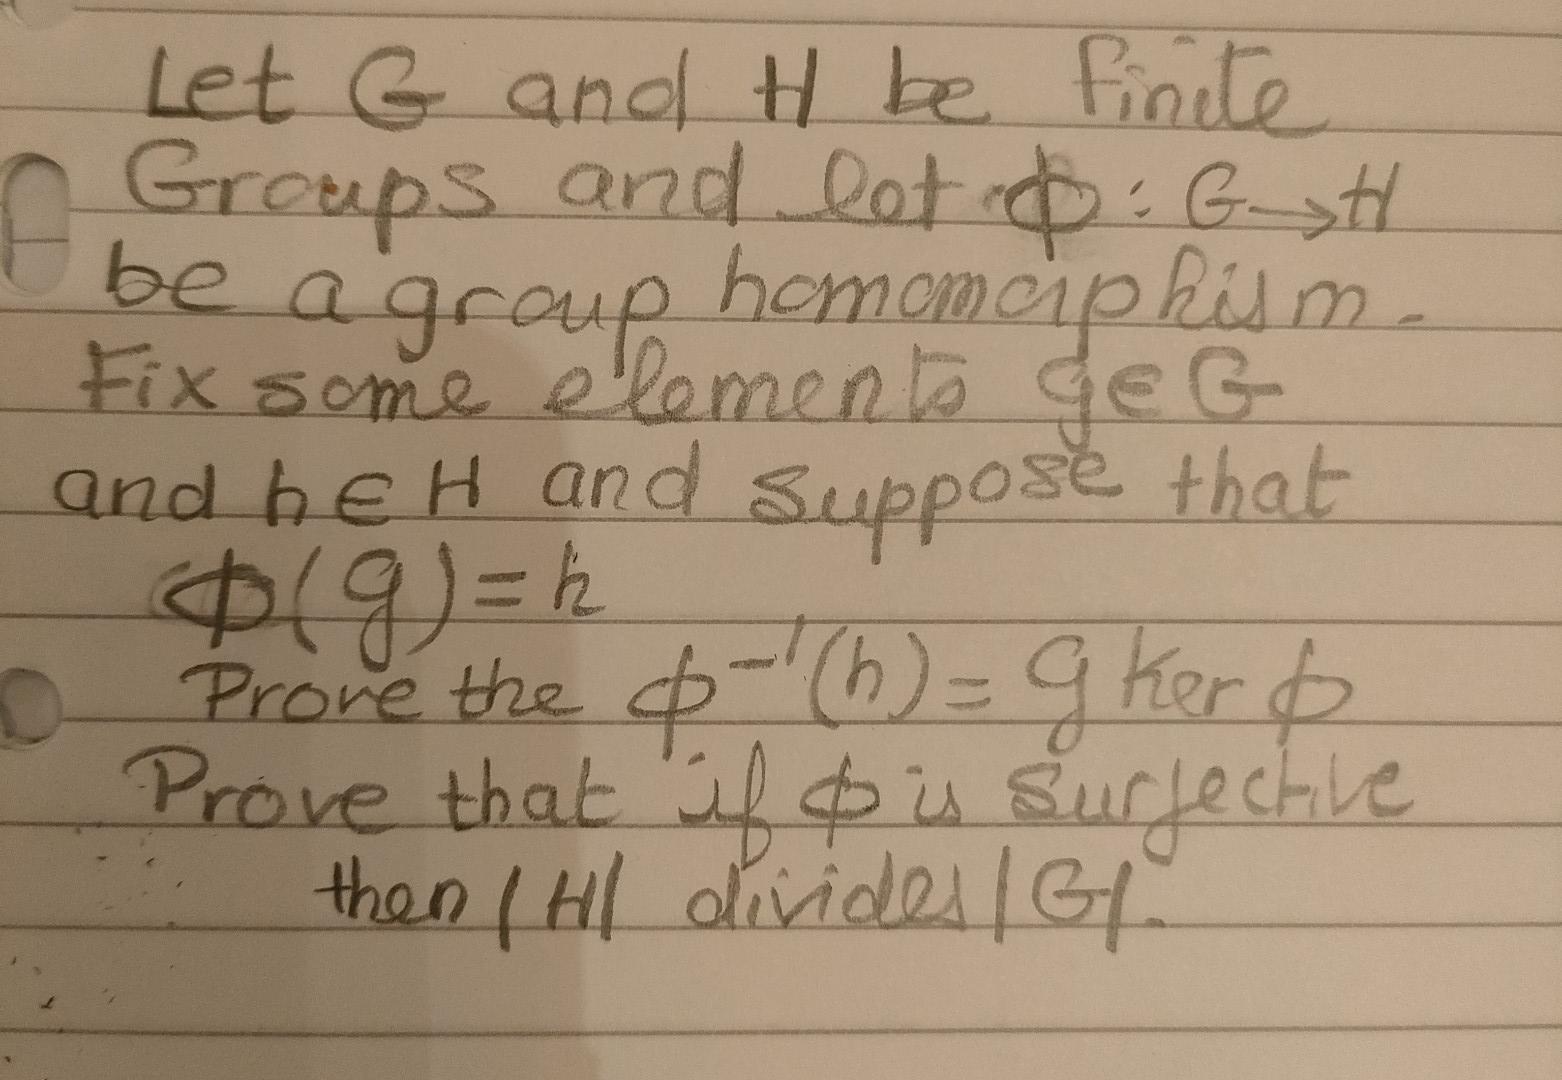 Let G and H be finite
Groups and let φ : G→H
be a group homomorphism.
Fix some elements g∈G
and h∈H and suppose that
φ(g)=h
Prove the φ⁻¹(h)= g ker φ
Prove that if φ is surjective
then |H| divides |G|.